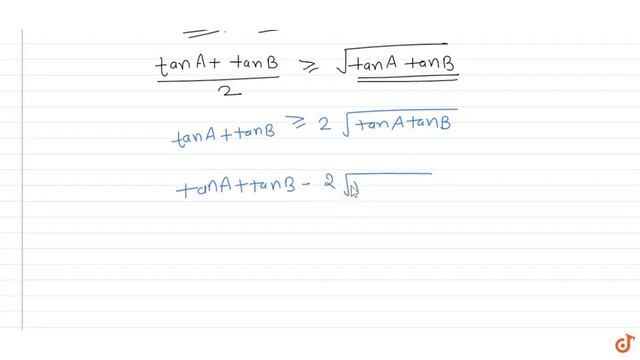 tanA + tanB / 2 ≥ √tanA tanB
tanA + tanB ≥ 2 √tanA tanB
tanA + tanB - 2 √